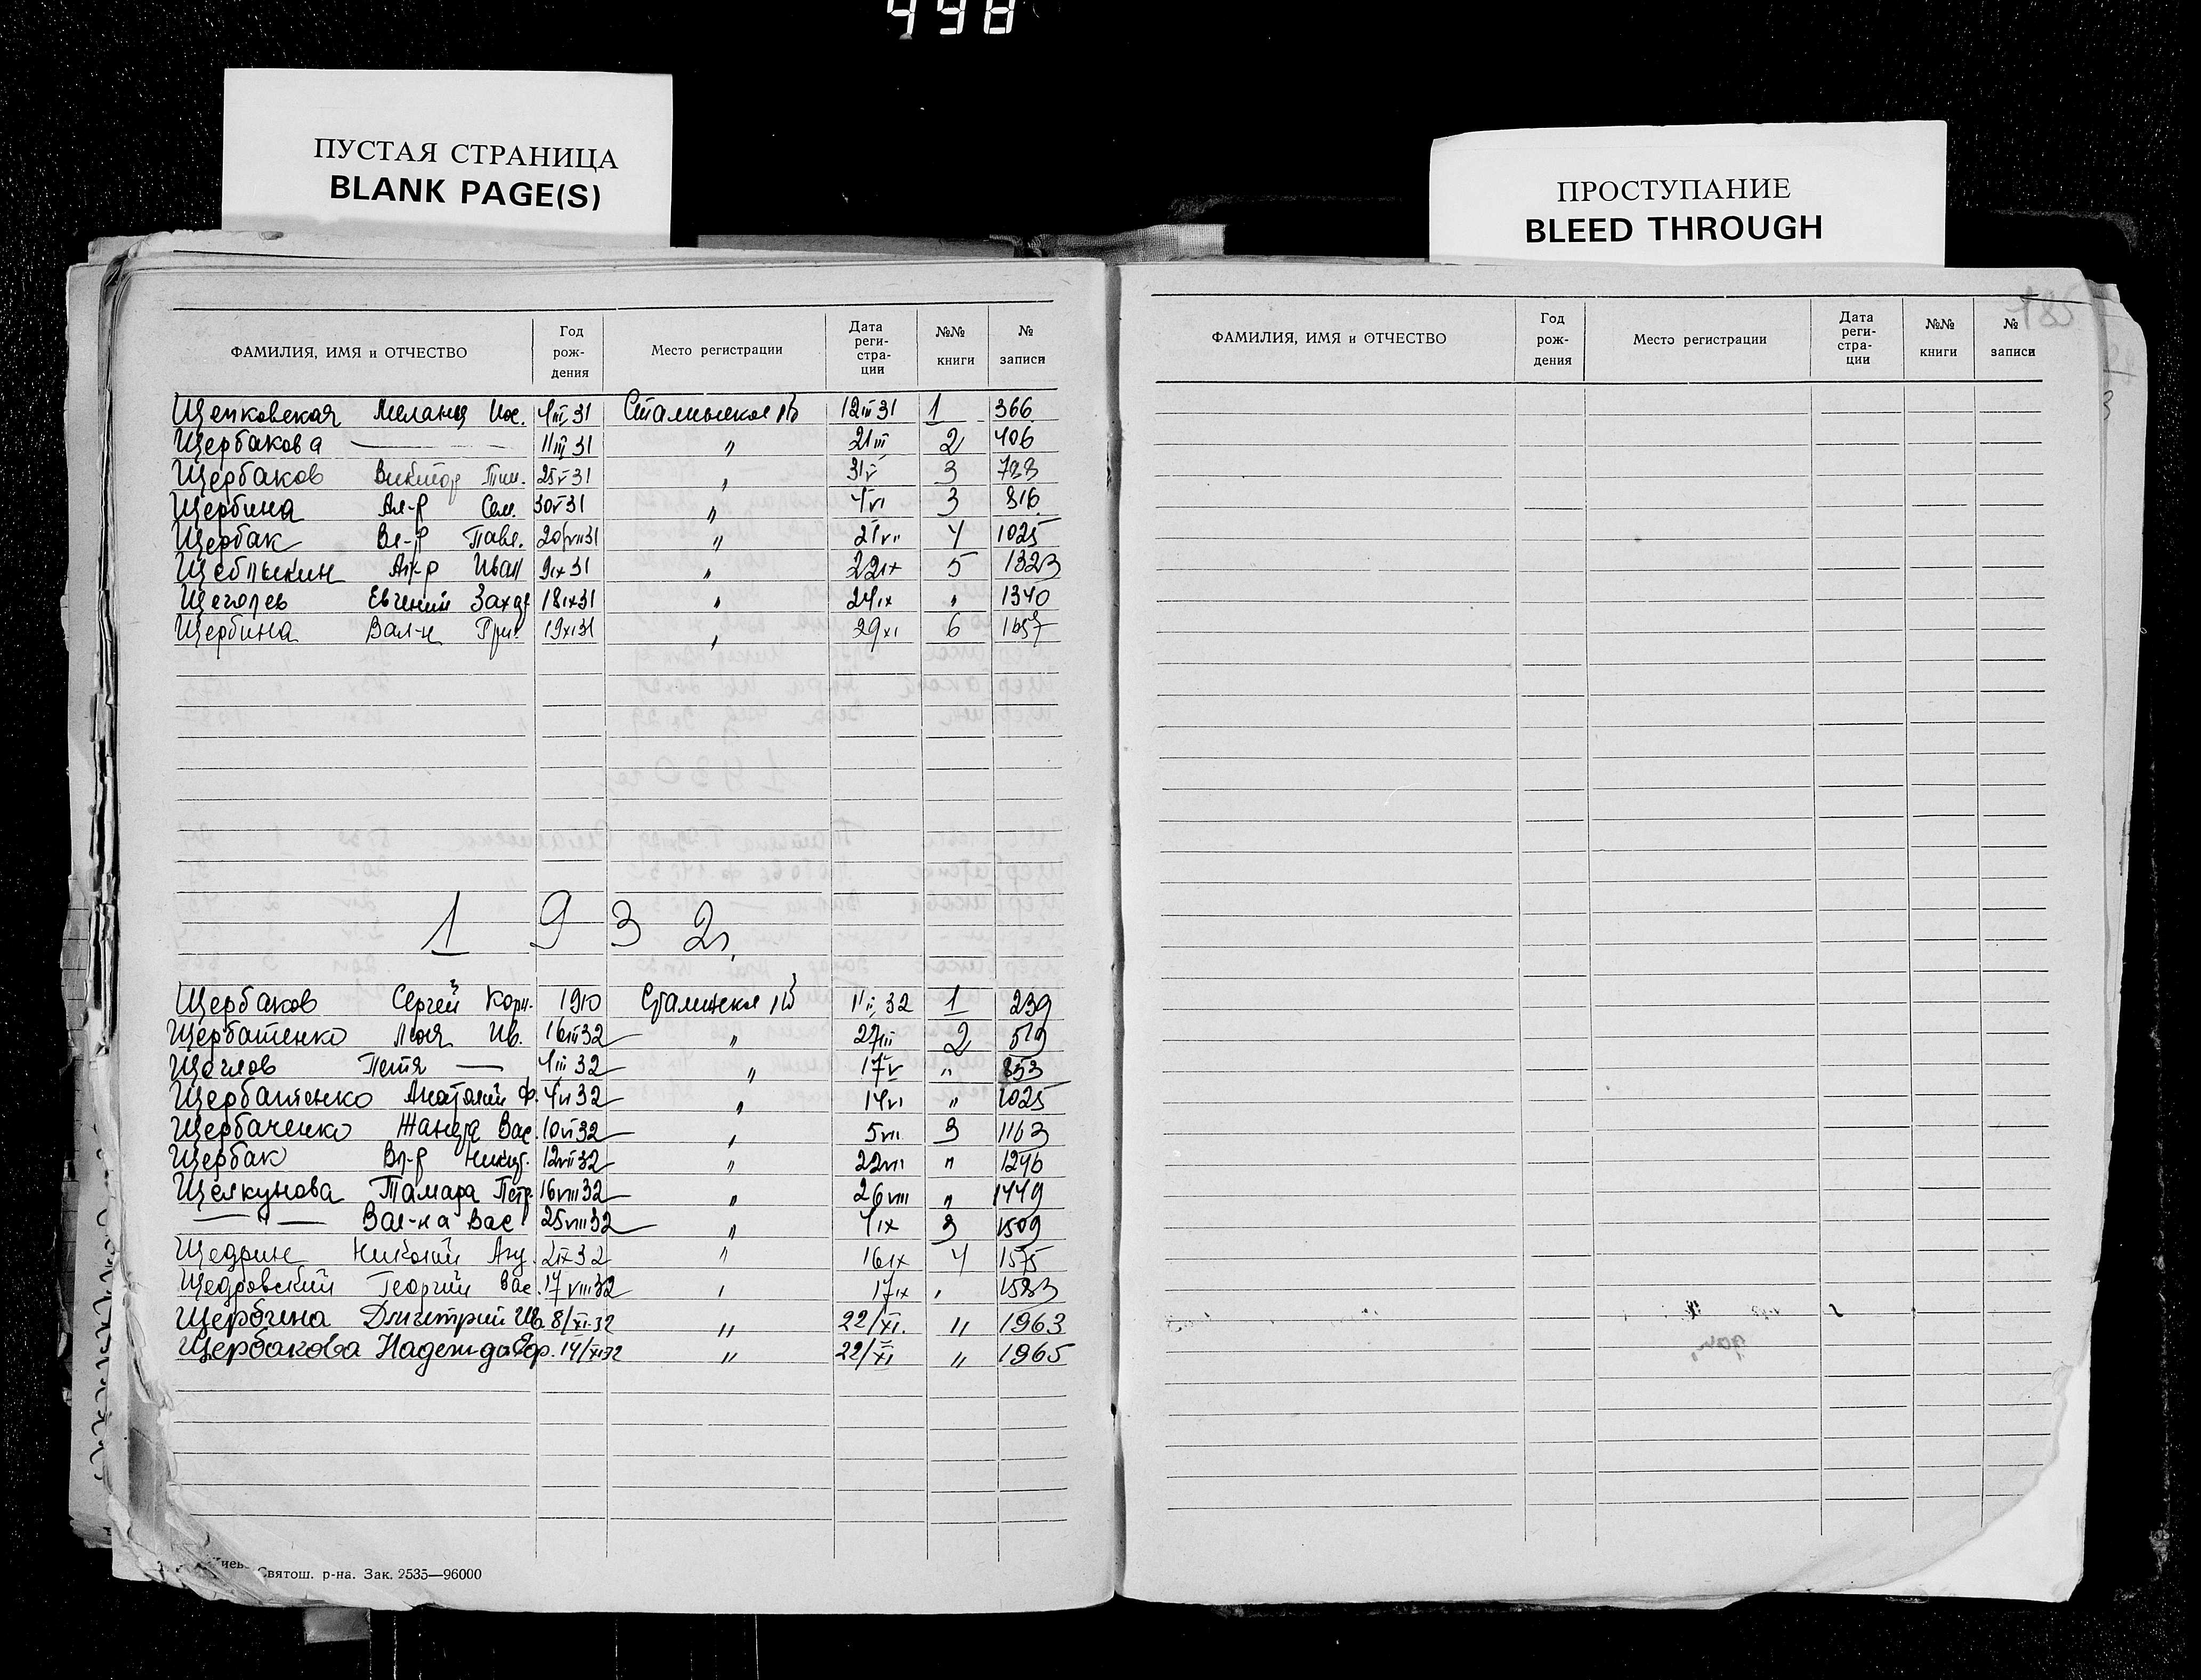 498
ПУСТАЯ СТРАНИЦА
BLANK PAGE(S)
ПРОСТУПАНИЕ
BLEED THROUGH
ФАМИЛИЯ, ИМЯ и ОТЧЕСТВО Год рож- дения Место регистрации Дата реги- стра- ции №№ книги № записи
Щепковская Мелания Иос. 4III31 12III31 1 366
Щербакова — 11III31 " 21III 2 406
Щербаков Виктор Тим. 25V31 " 31V 3
Щербина Ал-р Сем. 30V31 " 4VI 3 816
Щербак Вл-р Павл. 20/VII31 " 21VII 4 1025
Ал-р Иван 9IX31 " 22IX 5 1323
Щеголев Евгений Захар 18IX31 " 24IX " 1340
Щербина Вал-н Григ. 19XI31 " 29XI 6
1932г.
Щербаков Сергей Корн. 1910 11II32 1 239
Щербатенко Люся Ив. 16III32 " 27III 2 519
Щеглов Петя — 4III32 " 17V " 853
Щербатенко Анатолий Ф. 4VI32 " 14VI " 1025
Щербаченко Жанета Вас. 10VI32 " 5VII 3 1163
Щербак Вл-р Никит. 12VII32 " 22VII " 1246
Щелкунова Тамара Петр. 16VIII32 " 26VIII " 1449
— " — Вал-на Вас. 25VIII32 " 4IX 3 1509
Щедрин Николай 2IX32 " 16IX 4 1575
Щедровский Георгий Вас. 17VIII32 " 17IX " 1583
Щербина Дмитрий Ив. 8/XI.32 " 22/XI. " 1963
Щербакова Надежда Еф. 14/XI32 " 22/XI " 1965
Святош. р-на. Зак. 2535—96000
ФАМИЛИЯ, ИМЯ и ОТЧЕСТВО Год рож- дения Место регистрации Дата реги- стра- ции №№ книги № записи